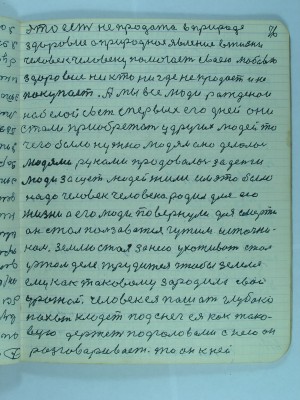 96
это есть не продажа в природе
здоровие а природная явление в жизни
человек человеку помогает своею любовью
здоровие никто нигде не придает и не
покупает. А мы все люди рожденои
на белой свет с первых его дней они
стали приобретать у других людей то
чего было нужно людям оно делалось
людями руками продовалось за деньги
люди за щет людей жили им это было
надо человек человека родил для его
жизни а его люди повернули для смерти
он стал пользоватся чужим источни-
ком. землю стал занею ухоживать стал
у этом деле трудится чтобы земля
ему как таковому зародила свой
урожай. человек ея пашет глубоко
пахит кладет под снег ея как тако-
вую держет под головами с нею он
разговаривает. то он к ней